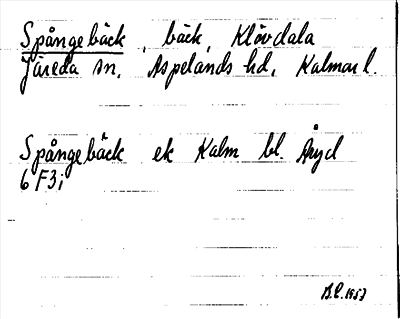 Spångebäck, bäck, Klövdala
Järeda sn, Aspelands hd, Kalmar l.
Spångebäck ek Kalm bl. Åryd
6 F3;
B.L. 1957